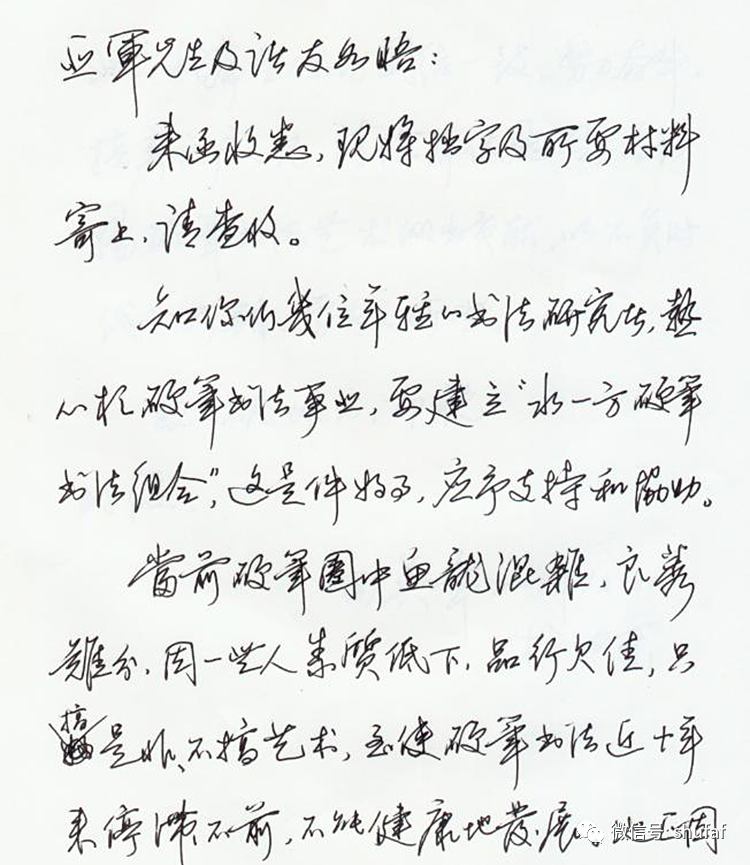 亚軍先生及诸友如晤：
来函收悉，现将拙字及所要材料
寄上，请查收。
知你们幾位年轻的书法研究者，熱
心於硬筆书法事业，要建立“水一方硬筆
书法组合”，这是件好事，应予支持和協助。
當前硬筆圈中鱼龍混雜，良莠
难分，因一些人素质低下，品行欠佳，只
搞是非、不搞艺术，至使硬筆书法近十年
来停滞不前，不能健康地發展。
微信号: shufaf